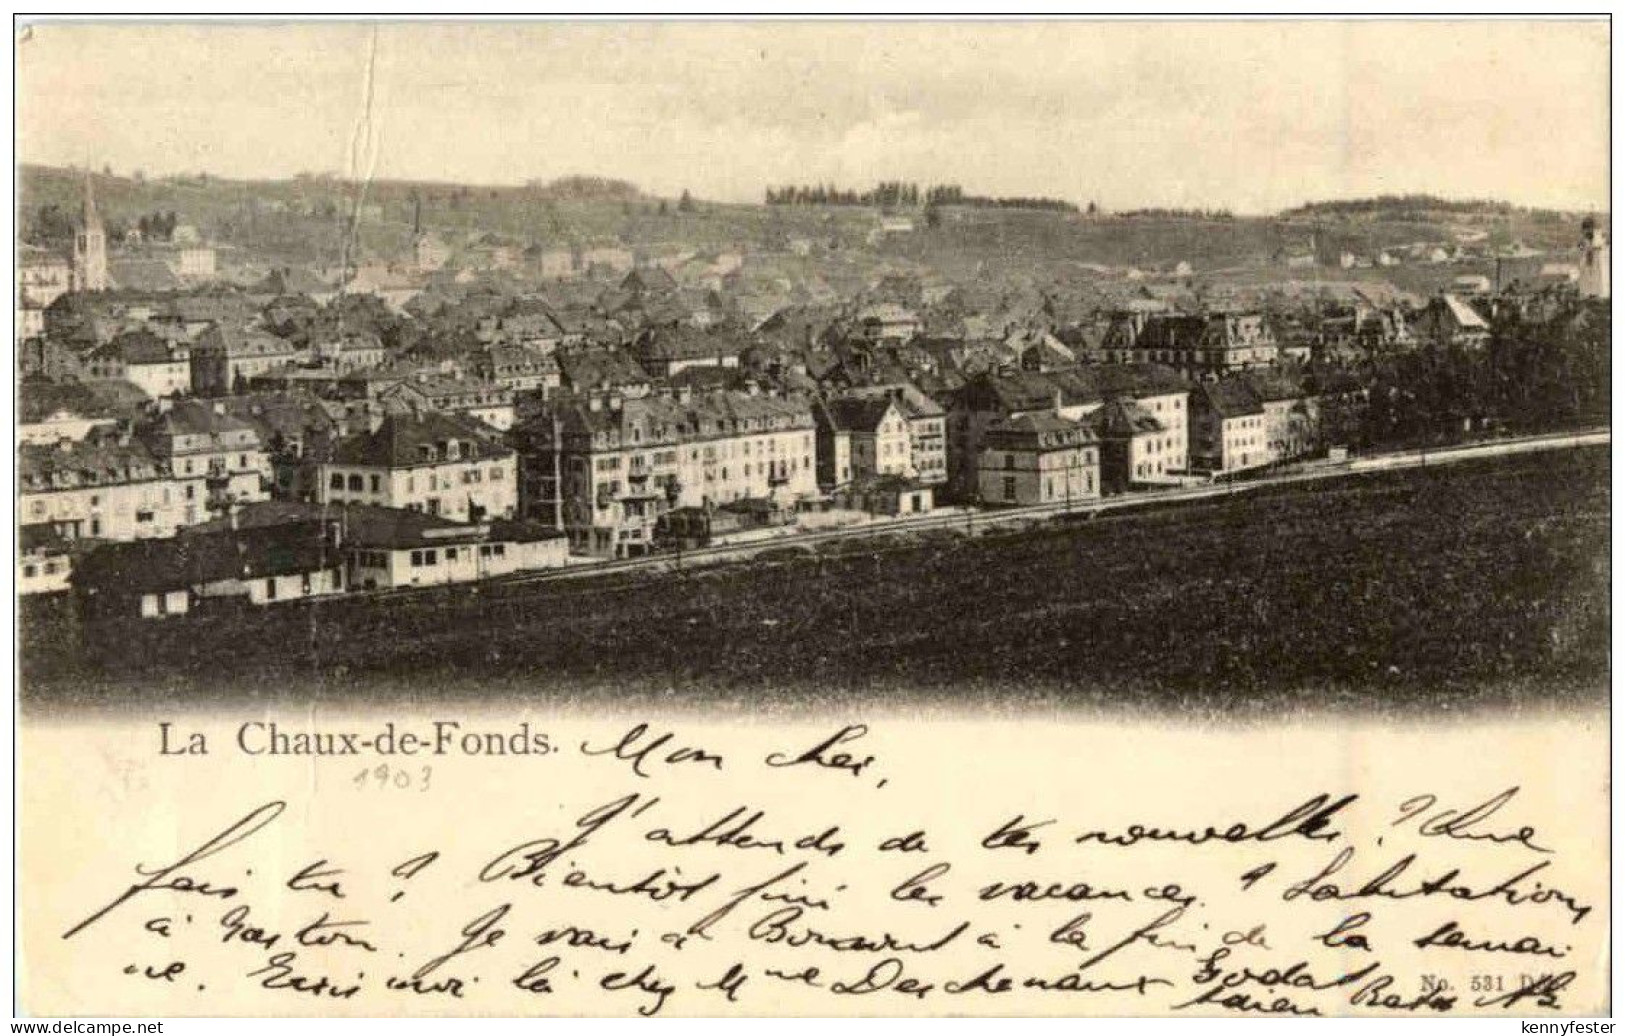 La Chaux-de-Fonds. Mon cher,
1903
J'attends de tes nouvelles ? Que
fais tu ? Bientôt fini les vacances ? Salutations
à Gaston. Je vais à à la fin de la semai
ne. Ecris moi là chez Mme Deschenaux
No. 531
kennyfester